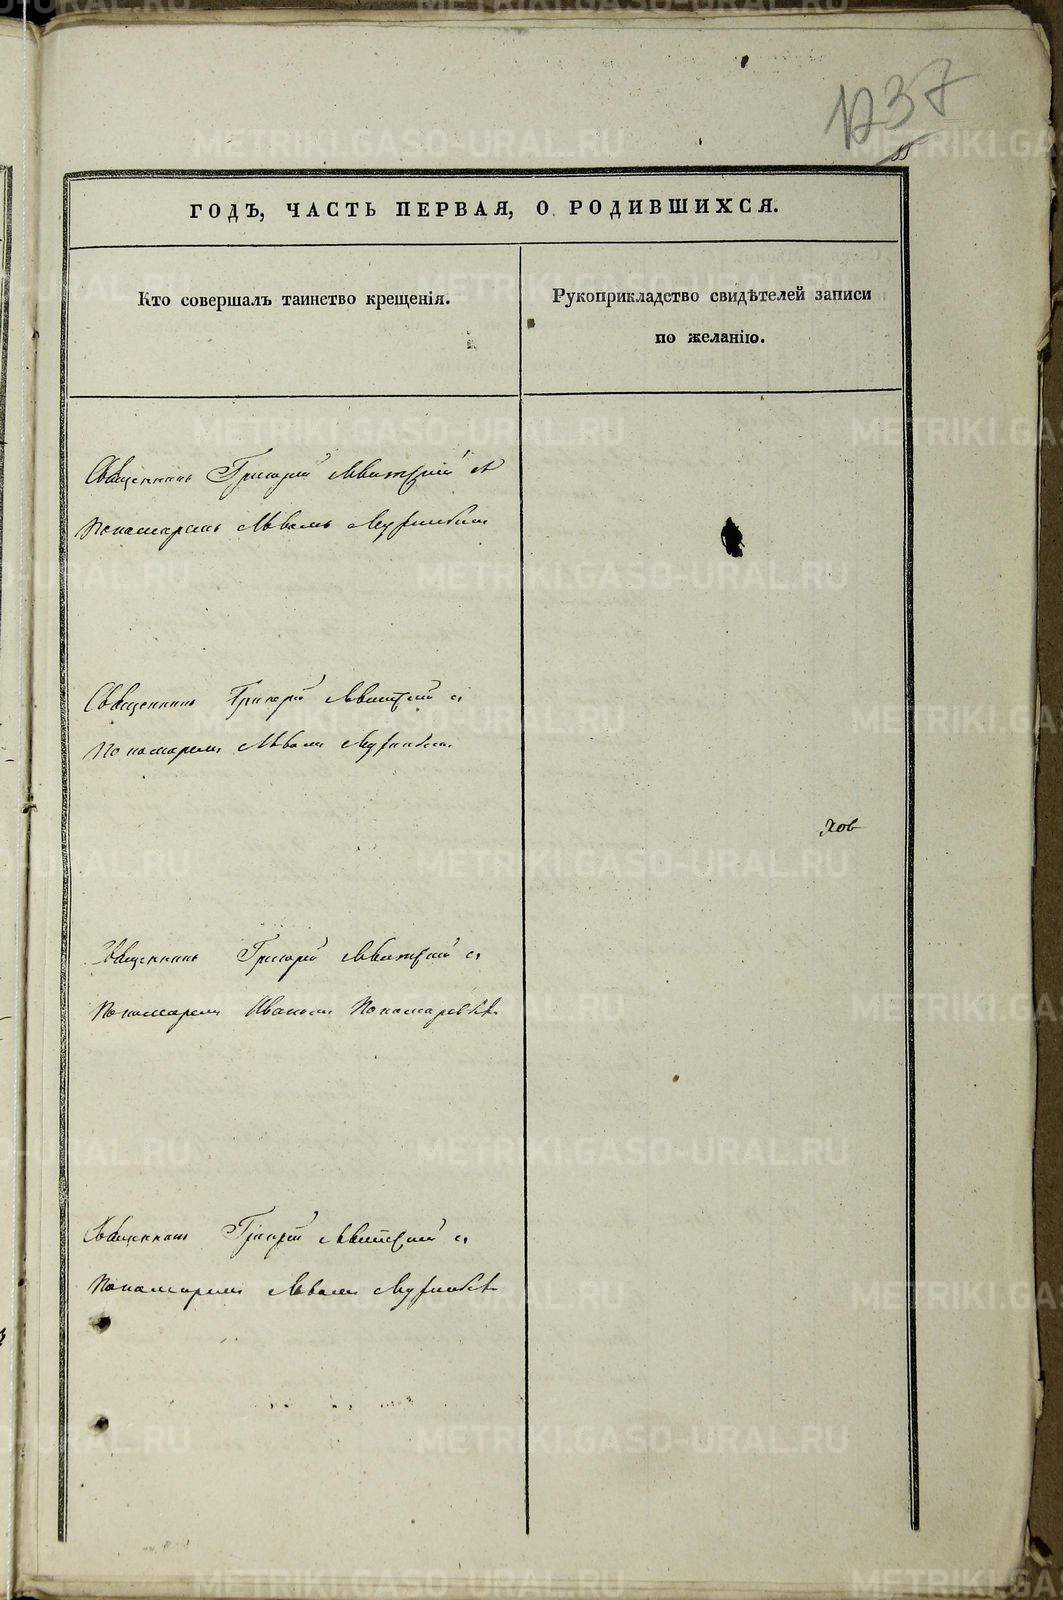 1237
55
ГОДЪ, ЧАСТЬ ПЕРВАЯ, О РОДИВШИХСЯ.
Кто совершалъ таинство крещенія.
Рукоприкладство свидѣтелей записи
по желанію.
Священникъ Григорій Левитскій с
Пономаремъ Львомъ
Священникъ Григорій Левитскій с
Пономаремъ Львомъ
хов
Священникъ Григорій Левитскій с
Пономаремъ Иваномъ Пономаревымъ
Священникъ Григорій Левитскій с
Пономаремъ Львомъ
METRIKI.GASO-URAL.RU